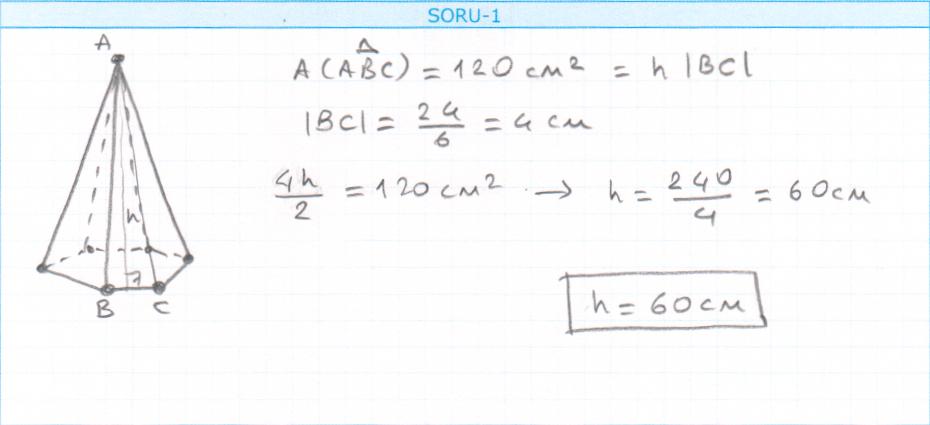 SORU-1
A
A(ABC) = 120 cm² = h |BC|
|BC| = 24/6 = 4 cm
4h/2 = 120 cm² → h = 240/4 = 60 cm
h
B C
h = 60 cm